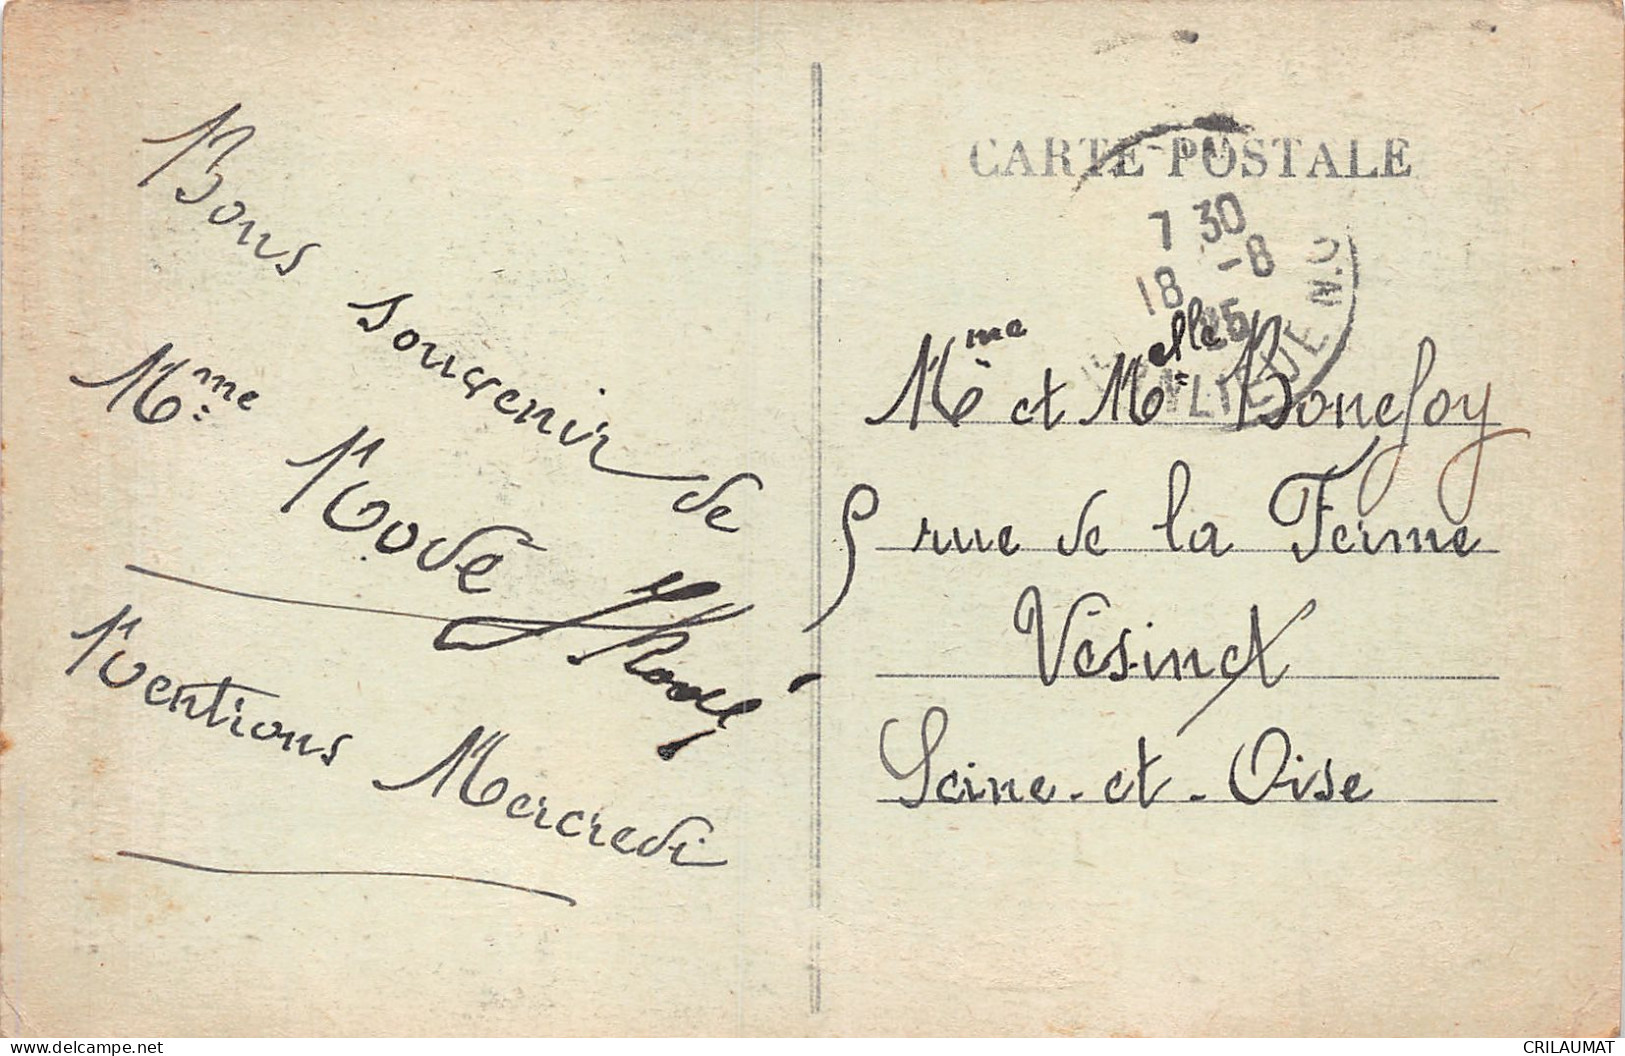 Bons souvenir de
Mme
Rentions Mercredi
CARTE POSTALE
7 30
18 -8
25
Mme et Melle Bonefoy
5 rue de la Ferme
Vésinet
Seine-et-Oise
delcampe.net
CRILAUMAT